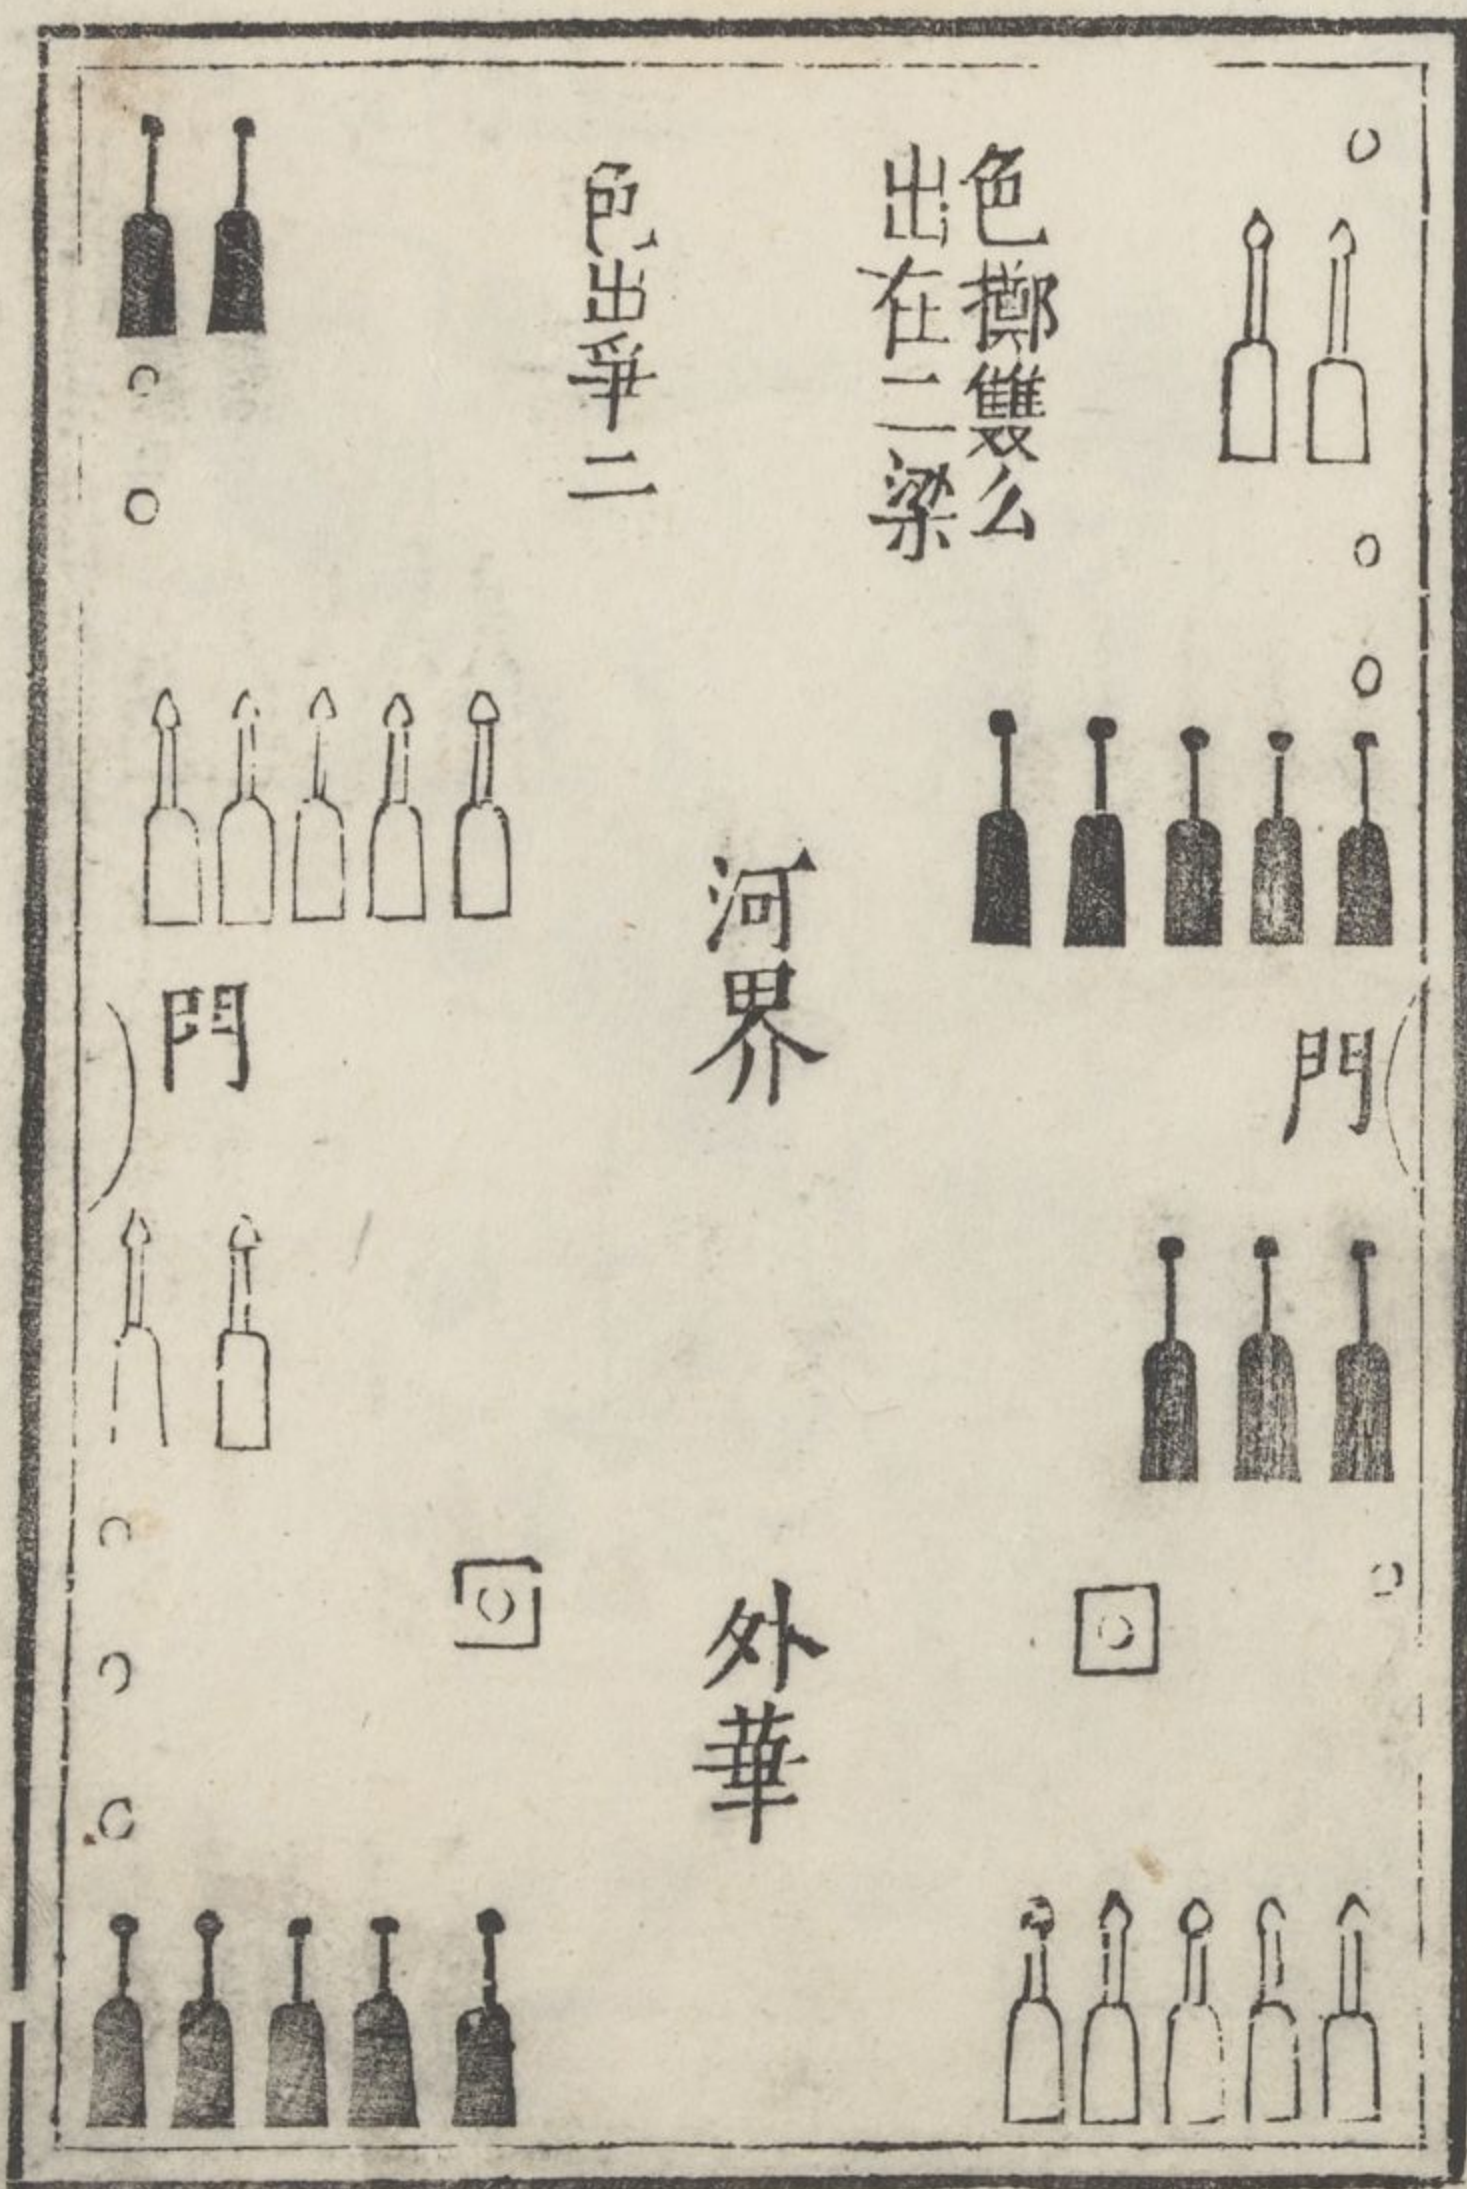 色擲雙么
出在二梁
色出爭二
門
河界
門
外華